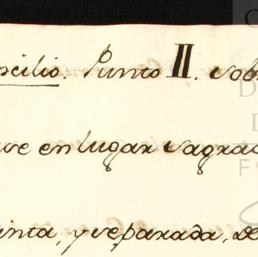 ncilio. Punto II. sob
ve en lugar sagrad
inta, y separada, de